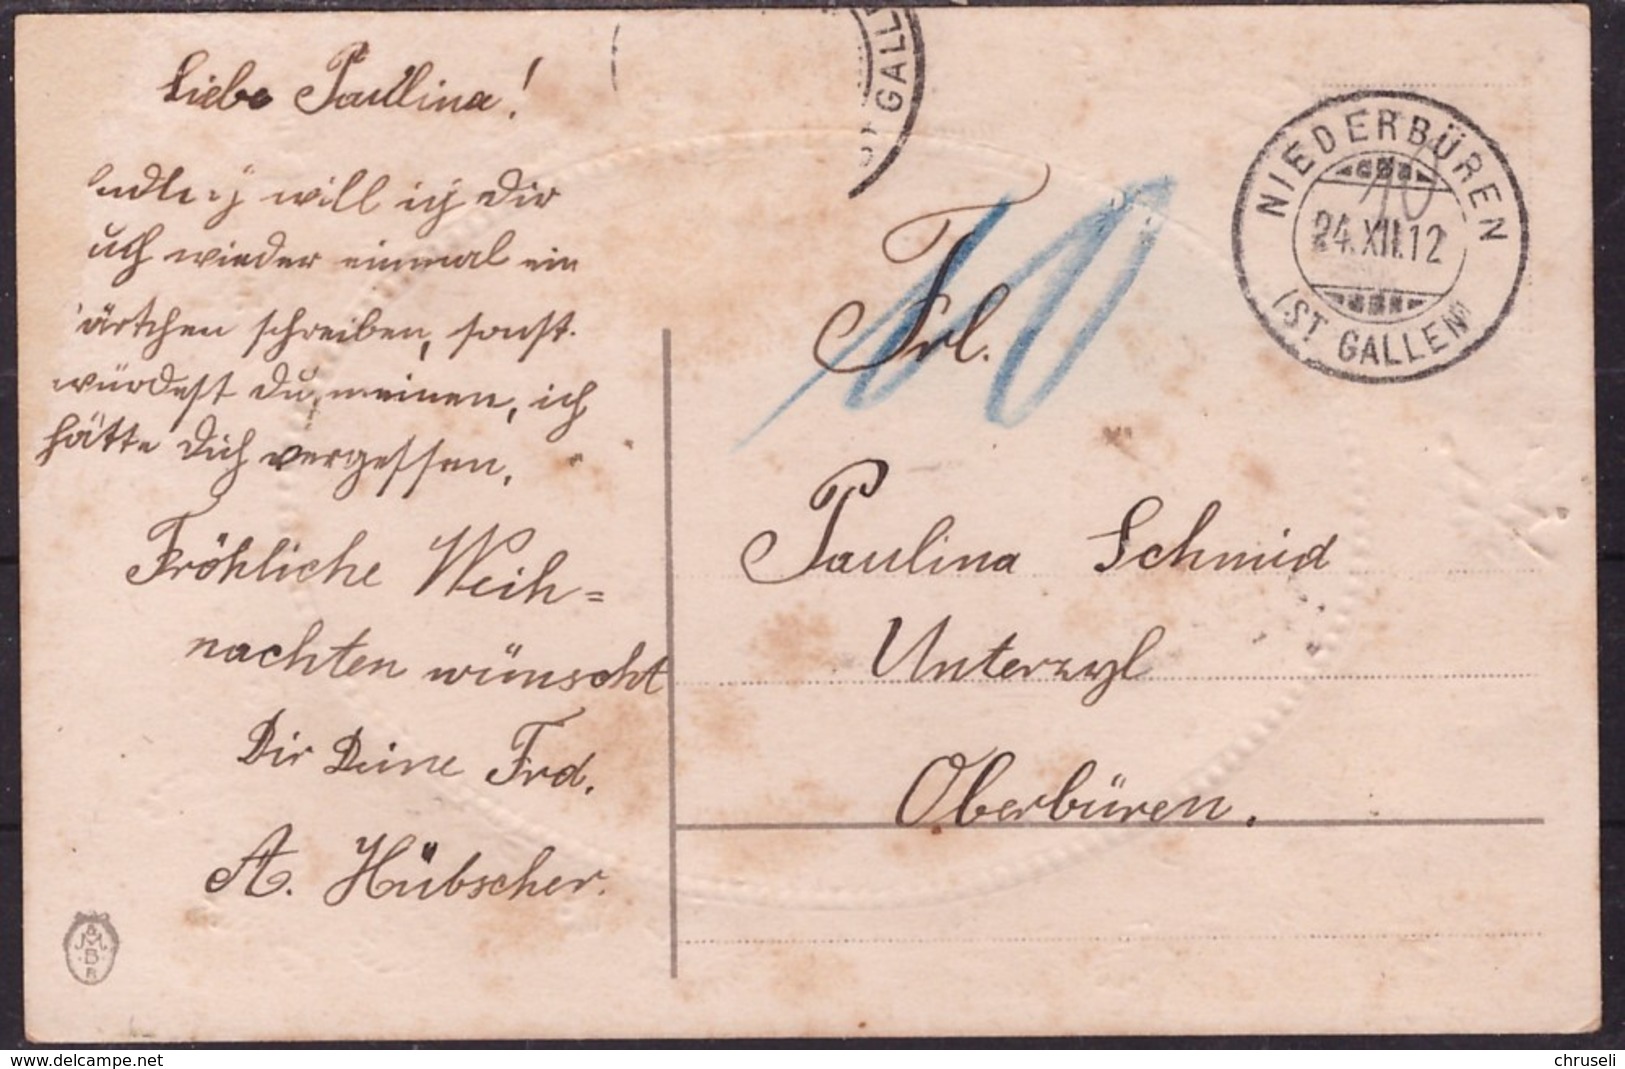 Liebe Paullina!
endlich will ich Dir
auch wieder einmal ein
Kärtchen schreiben, sonst
würdest Du meinen, ich
hätte Dich vergessen.
Fröhliche Weih=
nachten wünscht
Dir Deine Frd.
A. Hübscher.
ST GALLE
NIEDERBÜREN
10
24.XII.12
(ST GALLEN)
10
Frl.
Paulina Schmid
Unterzyl
Oberbüren.
&
M
B
R
chruseli
delcampe.net